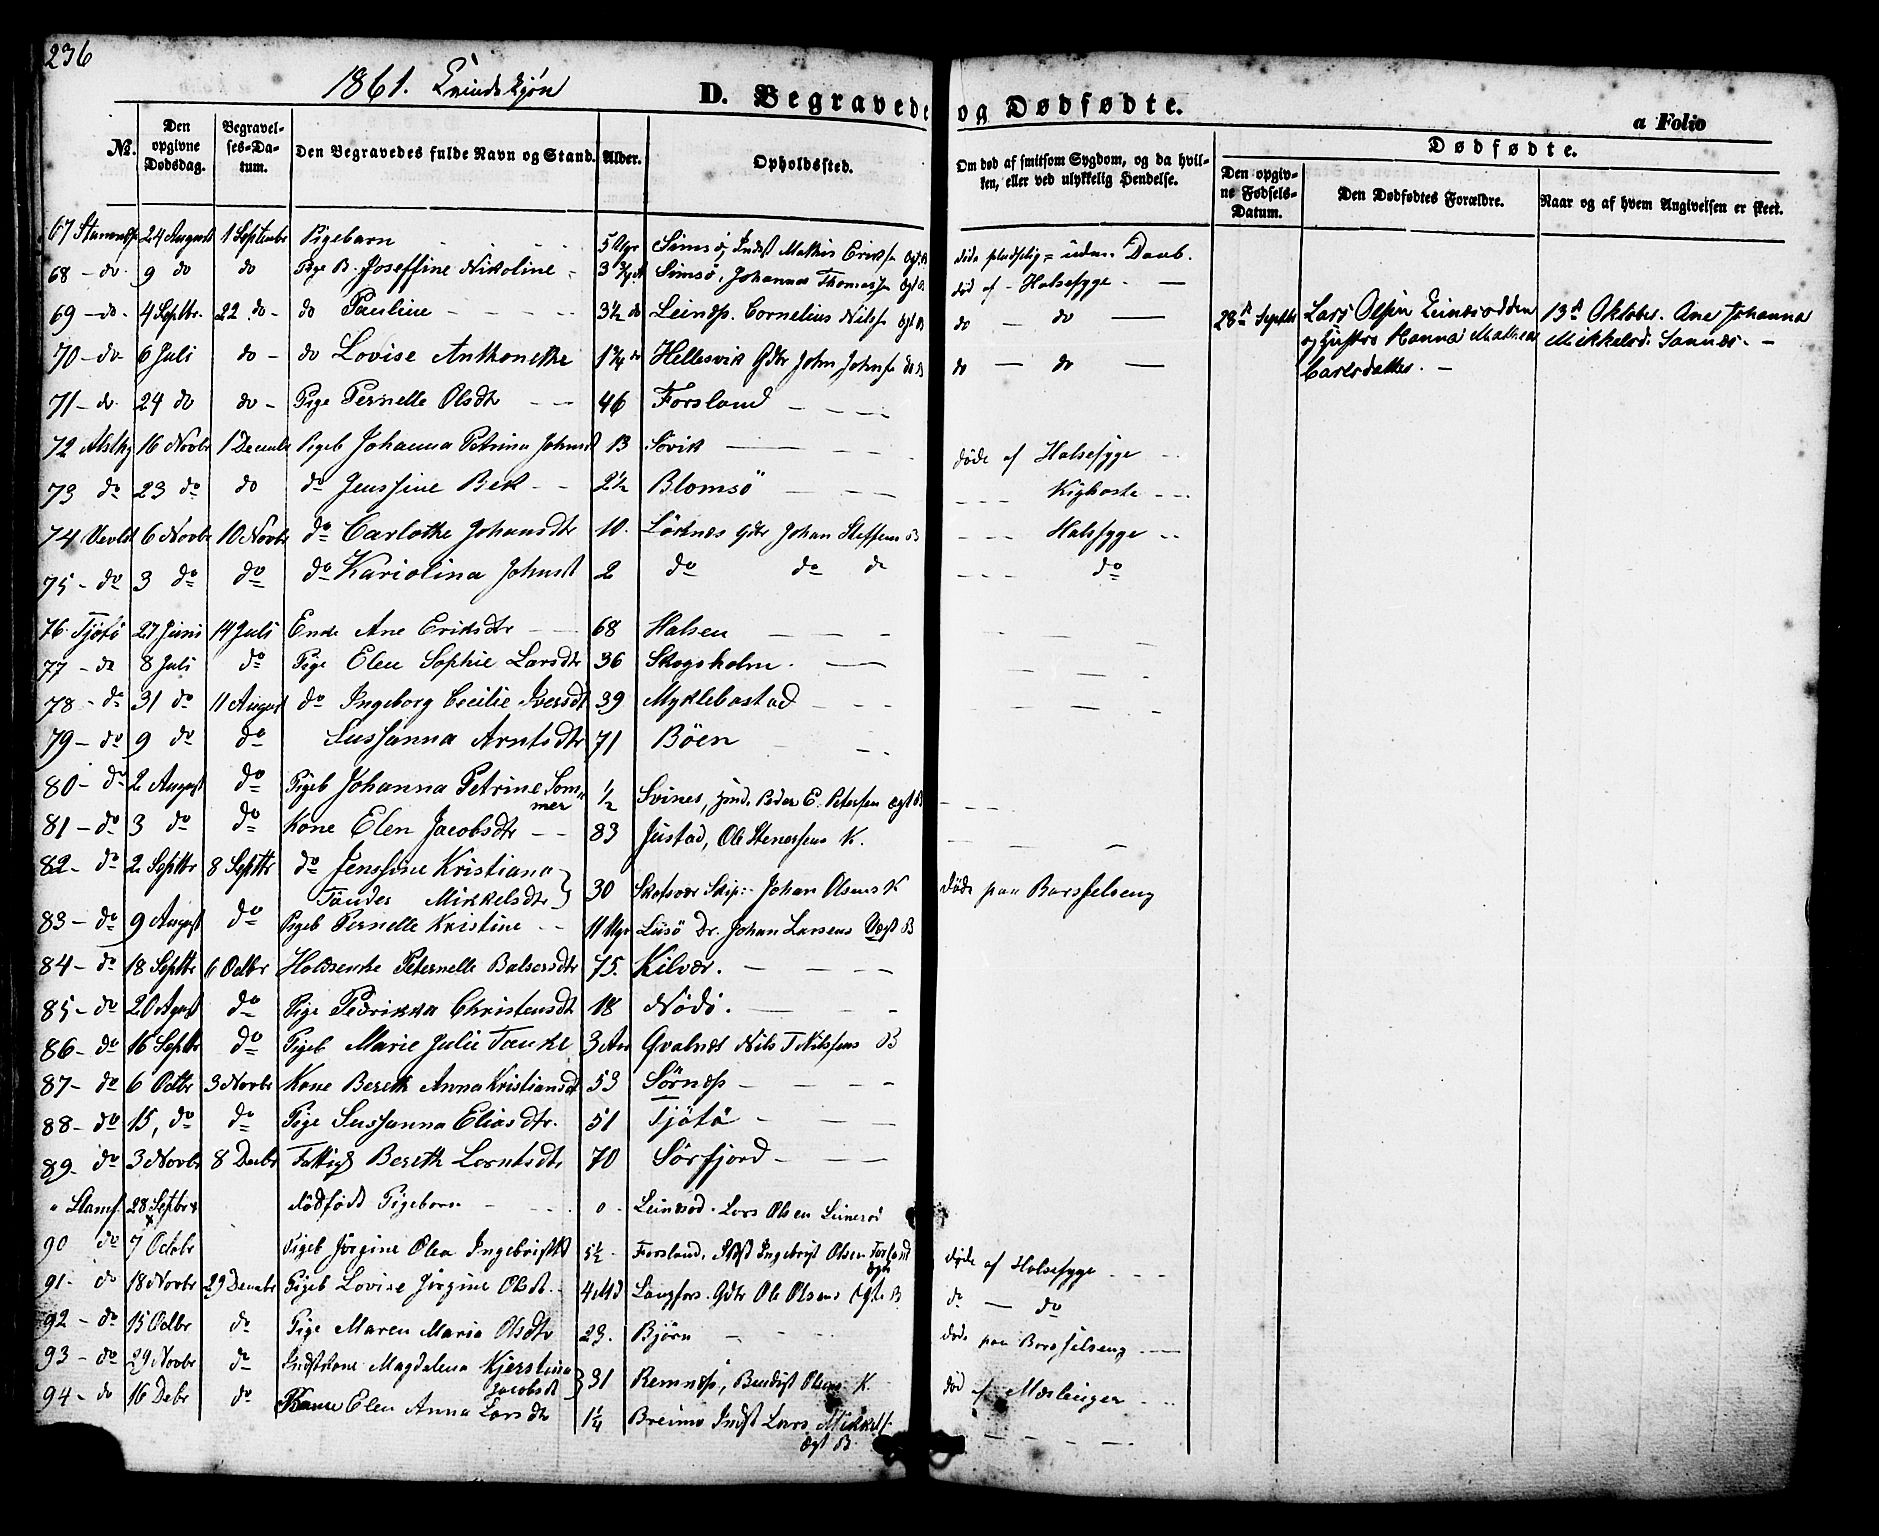 236
1861. Kvindekjön
D. Begravede og Dødfødte.
a Folio
No.
Den opgivne Dødsdag.
Begravelses-Datum.
Den Begravedes fulde Navn og Stand.
Alder.
Opholdssted.
Om død af smitsom Sygdom, og da hvilken, eller ved ulykkelig Hendelse.
Dødfødte.
Den opgivne Fødsels-Datum.
Den Dødfødtes Forældre.
Naar og af hvem Angivelsen er skeet.
67 24 August 1 Septembr Pigebarn 5 Uger Simsö, Indst Mathis Eriks Ægt B döde pludselig = uden Daab.
68 - do 9 do do Pige B. Joseffine Nikoline 3 3/4 Simsö, Johannes Thomass Ægt B död af - Halsesyge. —
69 - do - 4 Septbr. 22 do - do Pauline 3½ do Leinæs. Cornelius Nilss Ægt B do — do —
28de Septbr Lars Olsen Leinesodden og Hustro Hanna Mathea Carlsdatter. - 13de Oktober. Ane Johanna Mikkelsd. Sannæs. -
70 - do 6 Juli do - do Lovise Anthonethe 1 3/4 do Hellesvik Gdbr John Johns do B do — do —
71 - do 24 do do - Pige Pernelle Olsdtr 46 Forsland
72 Alsthg 16 Novbr 1 Decembr Pigeb Johanna Petrina Johnsdt 13 Sövik döde af Halsesyge
73 do 23 do do do Jenssine Bek 2½ Blomsö Kighoste
74 6 Novbr 10 Novbr do Carlothe Johansdtr 10. Gdbr Johan Steffens B Halssyge
75 - do 3 do do do Kariolina Johnsdt 2 do do do do
76. Tjötö 27 Juni 14 Juli Enke Ane Eriksdtr 68 Halsen
77 - do 8 Juli do Pige Elen Sophie Larsdtr 36 Skogsholm.
78 - do 31 do 11 August do Ingeborg Cecilie Iversdt 39 Myklebostad
79 - do 9 do do Sussanna Arntsdtr 71 Böen
80 - do 2 August do Pigeb Johanna Petrine Sommer ½ Svines, Peder E. Petersen Ægt B
81 - do 3 do do Kone Elen Jacobsdtr 83 Justad, Ole Stenersens K.
82 - do 2 Septbr 8 Septbr do Jenssine Kristiana Tandes Mikkelsdtr 30 Skotsvær Skip: Johan Olsens K döde paa Barsselseng
83 - do 9 August do Pigeb Pernelle Kristine 11 Uger Johan Larsens Uægt B
84 - do 18 Septbr 6 Octbr Peternelle Balsersdtr 75. Kilvær.
85 - do 20 August do Pige Fedrikka Christensdt 18 Nödö.
86 - do 16 Septbr do Pigeb Marie Julie Tanke 3 Aar Qvalnes Nils T Nilssens B
87 - do 6 Octbr 3 Novbr Kone Bereth Anna Kristiansdt 53 Sörnæs
88 - do 15, do do Pige Sussanna Eliasdtr. 51 Tjötö
89 - do 3 Novbr 8 Decbr Fattigl Bereth Lorntsdtr 70 Sörfjord
" Stamf. 28 Septbr dödfödt Pigebarn 0 Leinesod. Lars Olsen Leinesod
90 do 7 Octbr Pigeb Jörgine Olea Ingebrigtsdt 5½ Forsland, Indst Ingebrigt Olsen Forsland Ægte döde af Halsesyge
91 - do 18 Novbr 29 Decembr Pigeb Lovise Jörgine Olsdt. 4 Md Langfors. Gdbr Ole Olsens Ægte B do — do
92 - do 15 Octbr do Pige Maren Maria Olsdtr 23. Björn döde paa Barsselseng
93 - do 29 Novbr do Indstkone Magdalena Kjerstina Jacobsdt 31 Remnæs, Bendigt Olsens K. död af Mæslinger
94 - do 16 Decbr do Elen Anna Larsdtr 1¼ Breimo Indst Lars Mikkels. Ægt B.